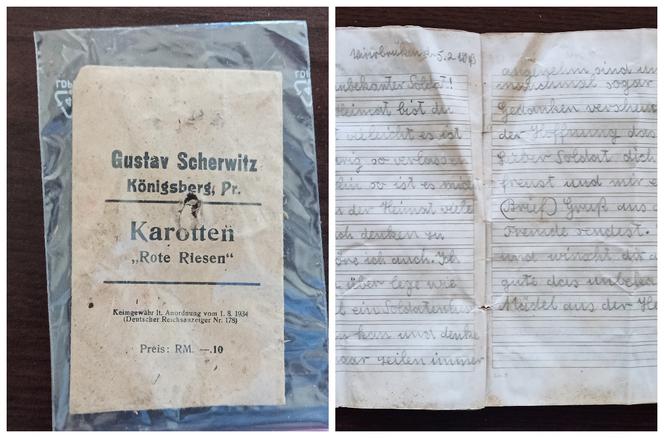 Gustav Scherwitz
Königsberg, Pr.
Karotten
„Rote Riesen“
Keimgewähr lt. Anordnung vom 1. 8. 1934
(Deutscher Reichsanzeiger Nr. 178)
Preis: RM. —.10
5.2.
unbekannter Soldat!
Heimat bist du
vielleicht es ist
so verlassen
so ist es
der Heimat viele
denken zu
ich auch. Ich
über lege wie
ein Soldaten
kan und denke
zeilen immer
angenehm sind
manchmal sogar
Gedanken
der Hoffnung das
lieber Soldat dich
freust und mir
(Brief) Gruß aus
Fremde sendest.
und wünscht dir
gute das
Meidel aus der